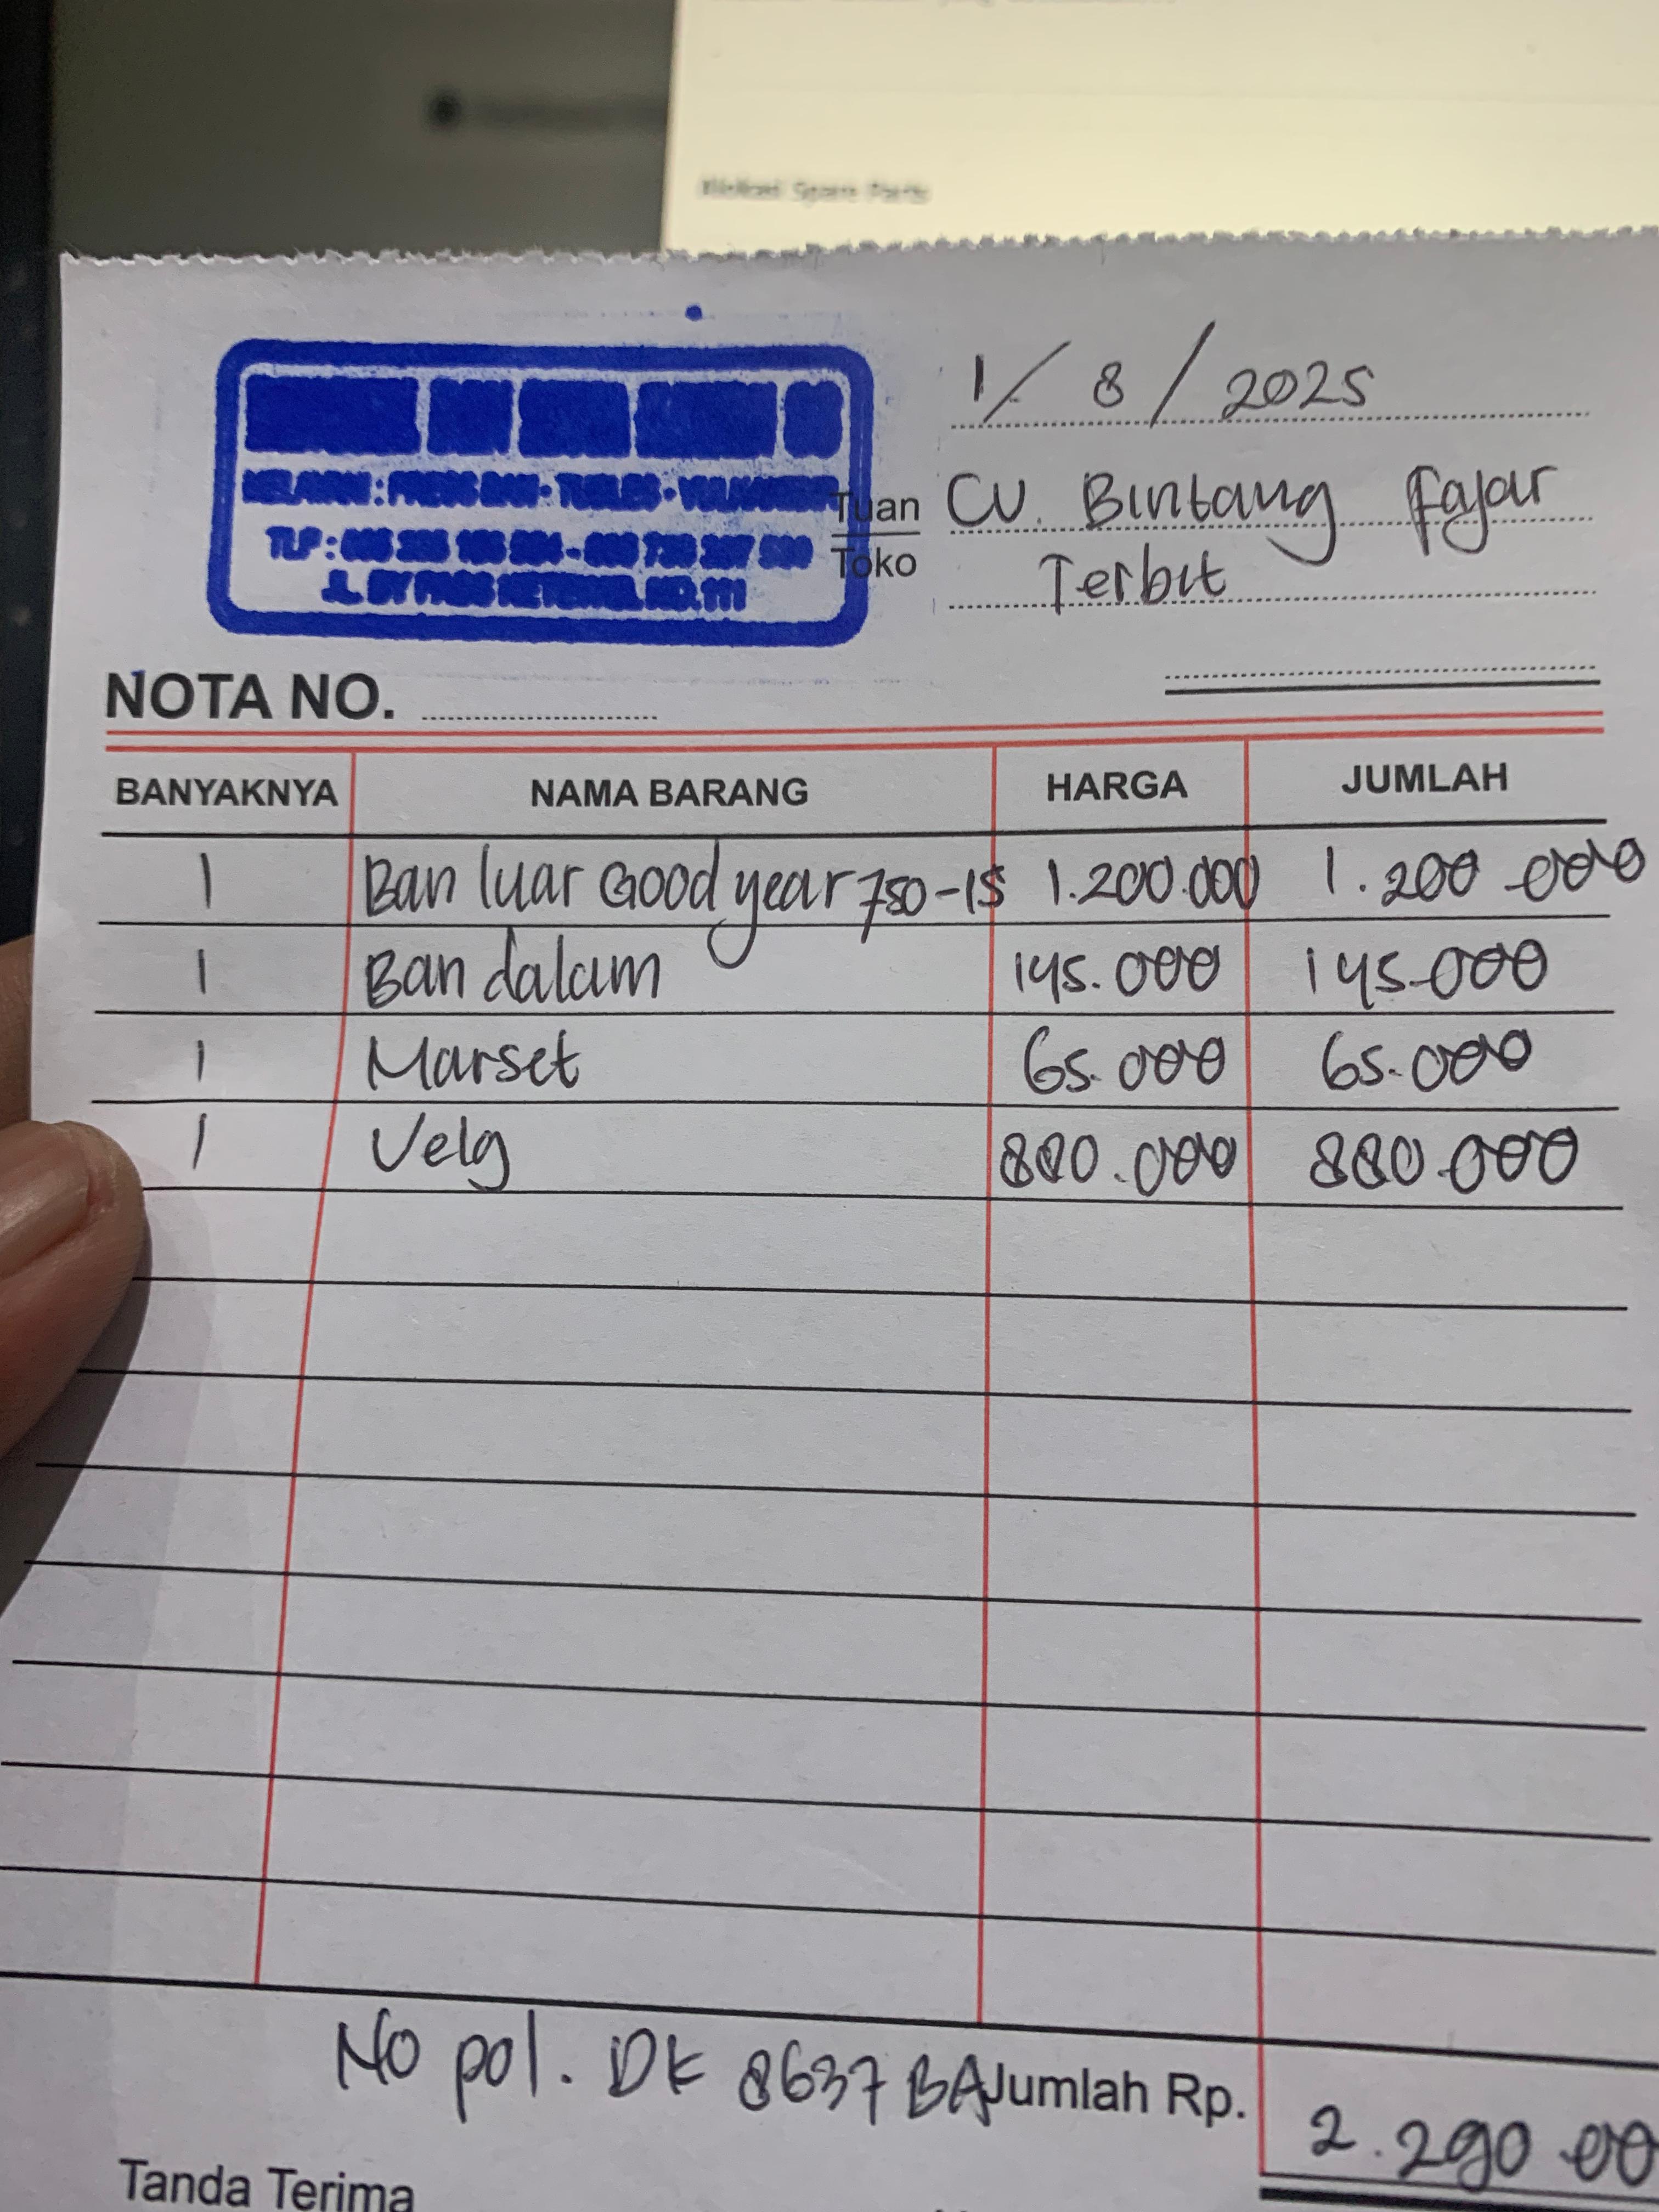 1/ 8 / 2025
Tuan CV. Bintang Fajar
Toko Terbit
NO.111
NOTA NO.
BANYAKNYA NAMA BARANG HARGA JUMLAH
1 Ban luar Good year 750-15 1.200.000 1.200.000
1 Ban dalam 145.000 145.000
1 Marset 65.000 65.000
1 Velg 880.000 880.000
No pol. DK 8637 BA Jumlah Rp. 2.290.00
Tanda Terima